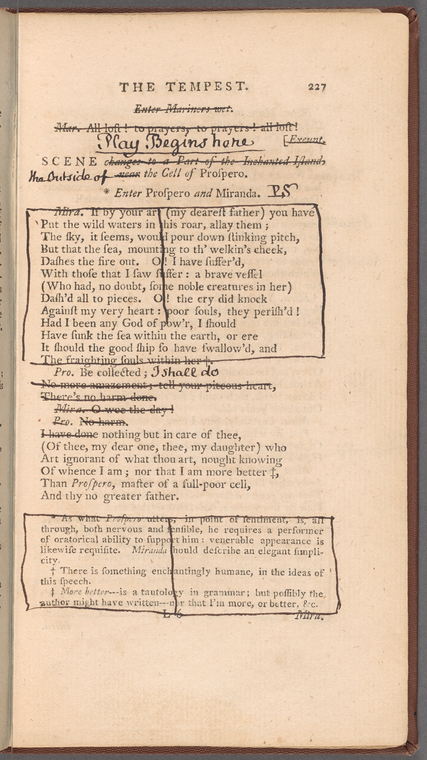 THE TEMPEST. 227
Enter Mariners wet.
Mar. All lost! to prayers, to prayers! all lost!
Play Begins here [Exeunt.
SCENE changes to a Part of the Inchanted Island,
the Outside of near the Cell of Prospero.
* Enter Prospero and Miranda. PS
Mira. If by your art (my dearest father) you have
Put the wild waters in this roar, allay them;
The sky, it seems, would pour down stinking pitch,
But that the sea, mounting to th' welkin's cheek,
Dashes the fire out. O! I have suffer'd,
With those that I saw suffer: a brave vessel
(Who had, no doubt, some noble creatures in her)
Dash'd all to pieces. O! the cry did knock
Against my very heart: poor souls, they perish'd!
Had I been any God of pow'r, I should
Have sunk the sea within the earth, or ere
It should the good ship so have swallow'd, and
The fraighting souls within her †.
Pro. Be collected; I shall do
No more amazement; tell your piteous heart,
There's no harm done.
Mira. O woe the day!
Pro. No harm.
I have done nothing but in care of thee,
(Of thee, my dear one, thee, my daughter) who
Art ignorant of what thou art, nought knowing
Of whence I am; nor that I am more better ‡,
Than Prospero, master of a full-poor cell,
And thy no greater father.
* As what Prospero utters, in point of sentiment, is, all
through, both nervous and sensible, he requires a performer
of oratorical ability to support him: venerable appearance is
likewise requisite. Miranda should describe an elegant simpli-
city.
† There is something enchantingly humane, in the ideas of
this speech.
‡ More better---is a tautology in grammar; but possibly the
author might have written---nor that I'm more, or better, &c.
L 6 Mira.